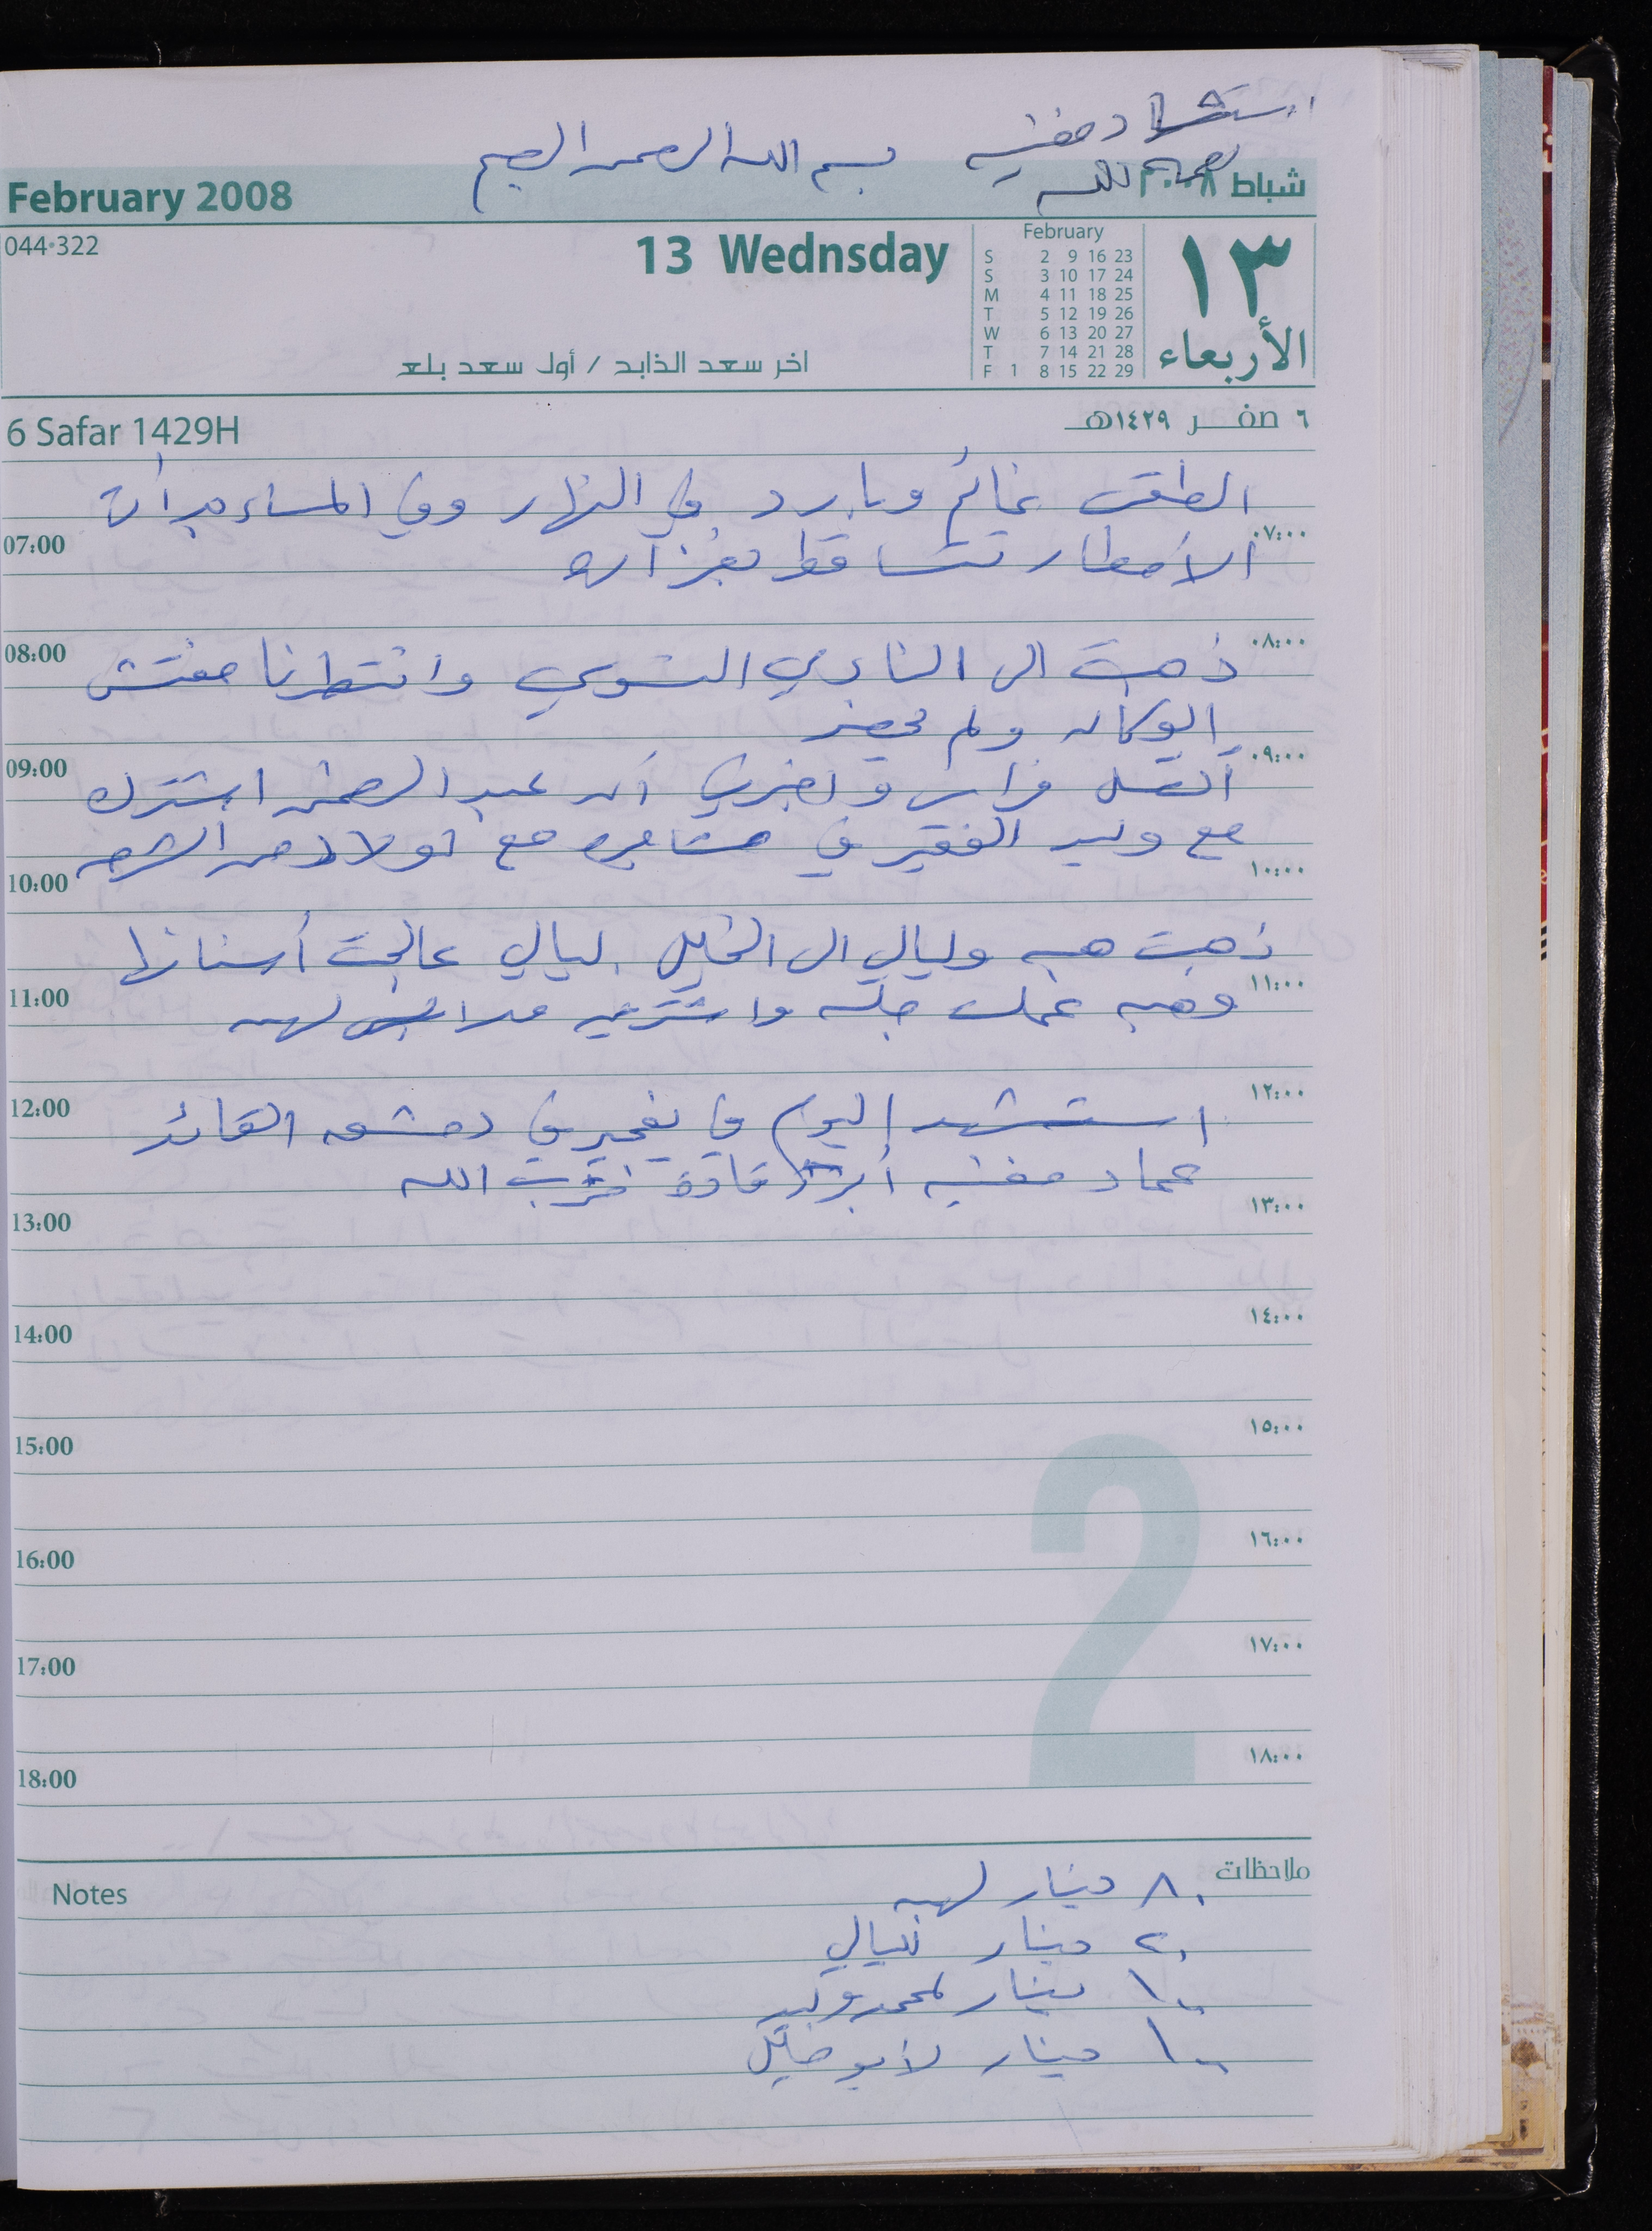 استشهاد مغنيه بسم الله الرحمن الرحيم
رحمه الله
February 2008 شباط ٢٠٠٨
044-322
13 Wednsday
February
S 2 9 16 23
S 3 10 17 24
M 4 11 18 25
T 5 12 19 26
W 6 13 20 27
T 7 14 21 28
F 1 8 15 22 29
١٣
الأربعاء
اخر سعد الذابح / أول سعد بلع
6 Safar 1429H ٦ صفر ١٤٢٩هـ
الطقس غائم وبارد في النهار وفي المساء بدأت
07:00 ٠٧:٠٠
الأمطار تتساقط بغزاره
08:00 ٠٨:٠٠
ذهبت الى النادي النسوي وانتظرنا مفتش
الوكاله ولم يحضر
09:00 ٠٩:٠٠
اتصل فراس واخبرني أن عبد الرحمن اشترك
مع وليد الفقير في مشاجره مع اولاد من
10:00 ١٠:٠٠
ذهبت هبه وليالي الى الخليل ليالي عالجت أسنانها
11:00 ١١:٠٠
وهبه عملت جلسه واشتريت ملابس لهبه
12:00 ١٢:٠٠
استشهد اليوم في تفجير في دمشق القائد
عماد مغنيه أبرز قادة حزب الله
13:00 ١٣:٠٠
14:00 ١٤:٠٠
15:00 ١٥:٠٠
2
16:00 ١٦:٠٠
17:00 ١٧:٠٠
18:00 ١٨:٠٠
Notes ملاحظات
٨٠ دينار لهبه
٢٠ دينار لليالي
١٠ دينار لمحمد وليد
١٠ دينار لأبو